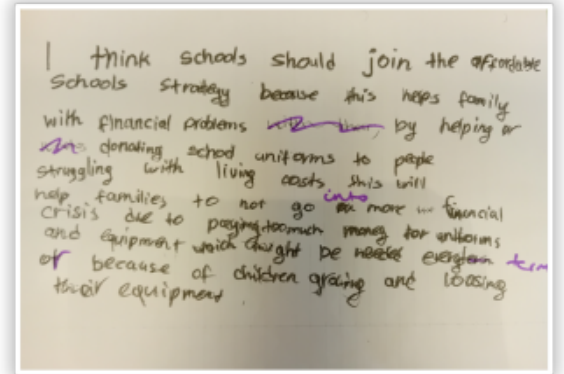 I think schools should join the affordable
Schools strategy because this helps family
with financial problems by helping or
donating school uniforms to people
struggling with living costs this will
help families to not go into more financial
crisis due to paying too much money for uniforms
and equipment which might be needed every term
or because of children growing and loosing
their equipment